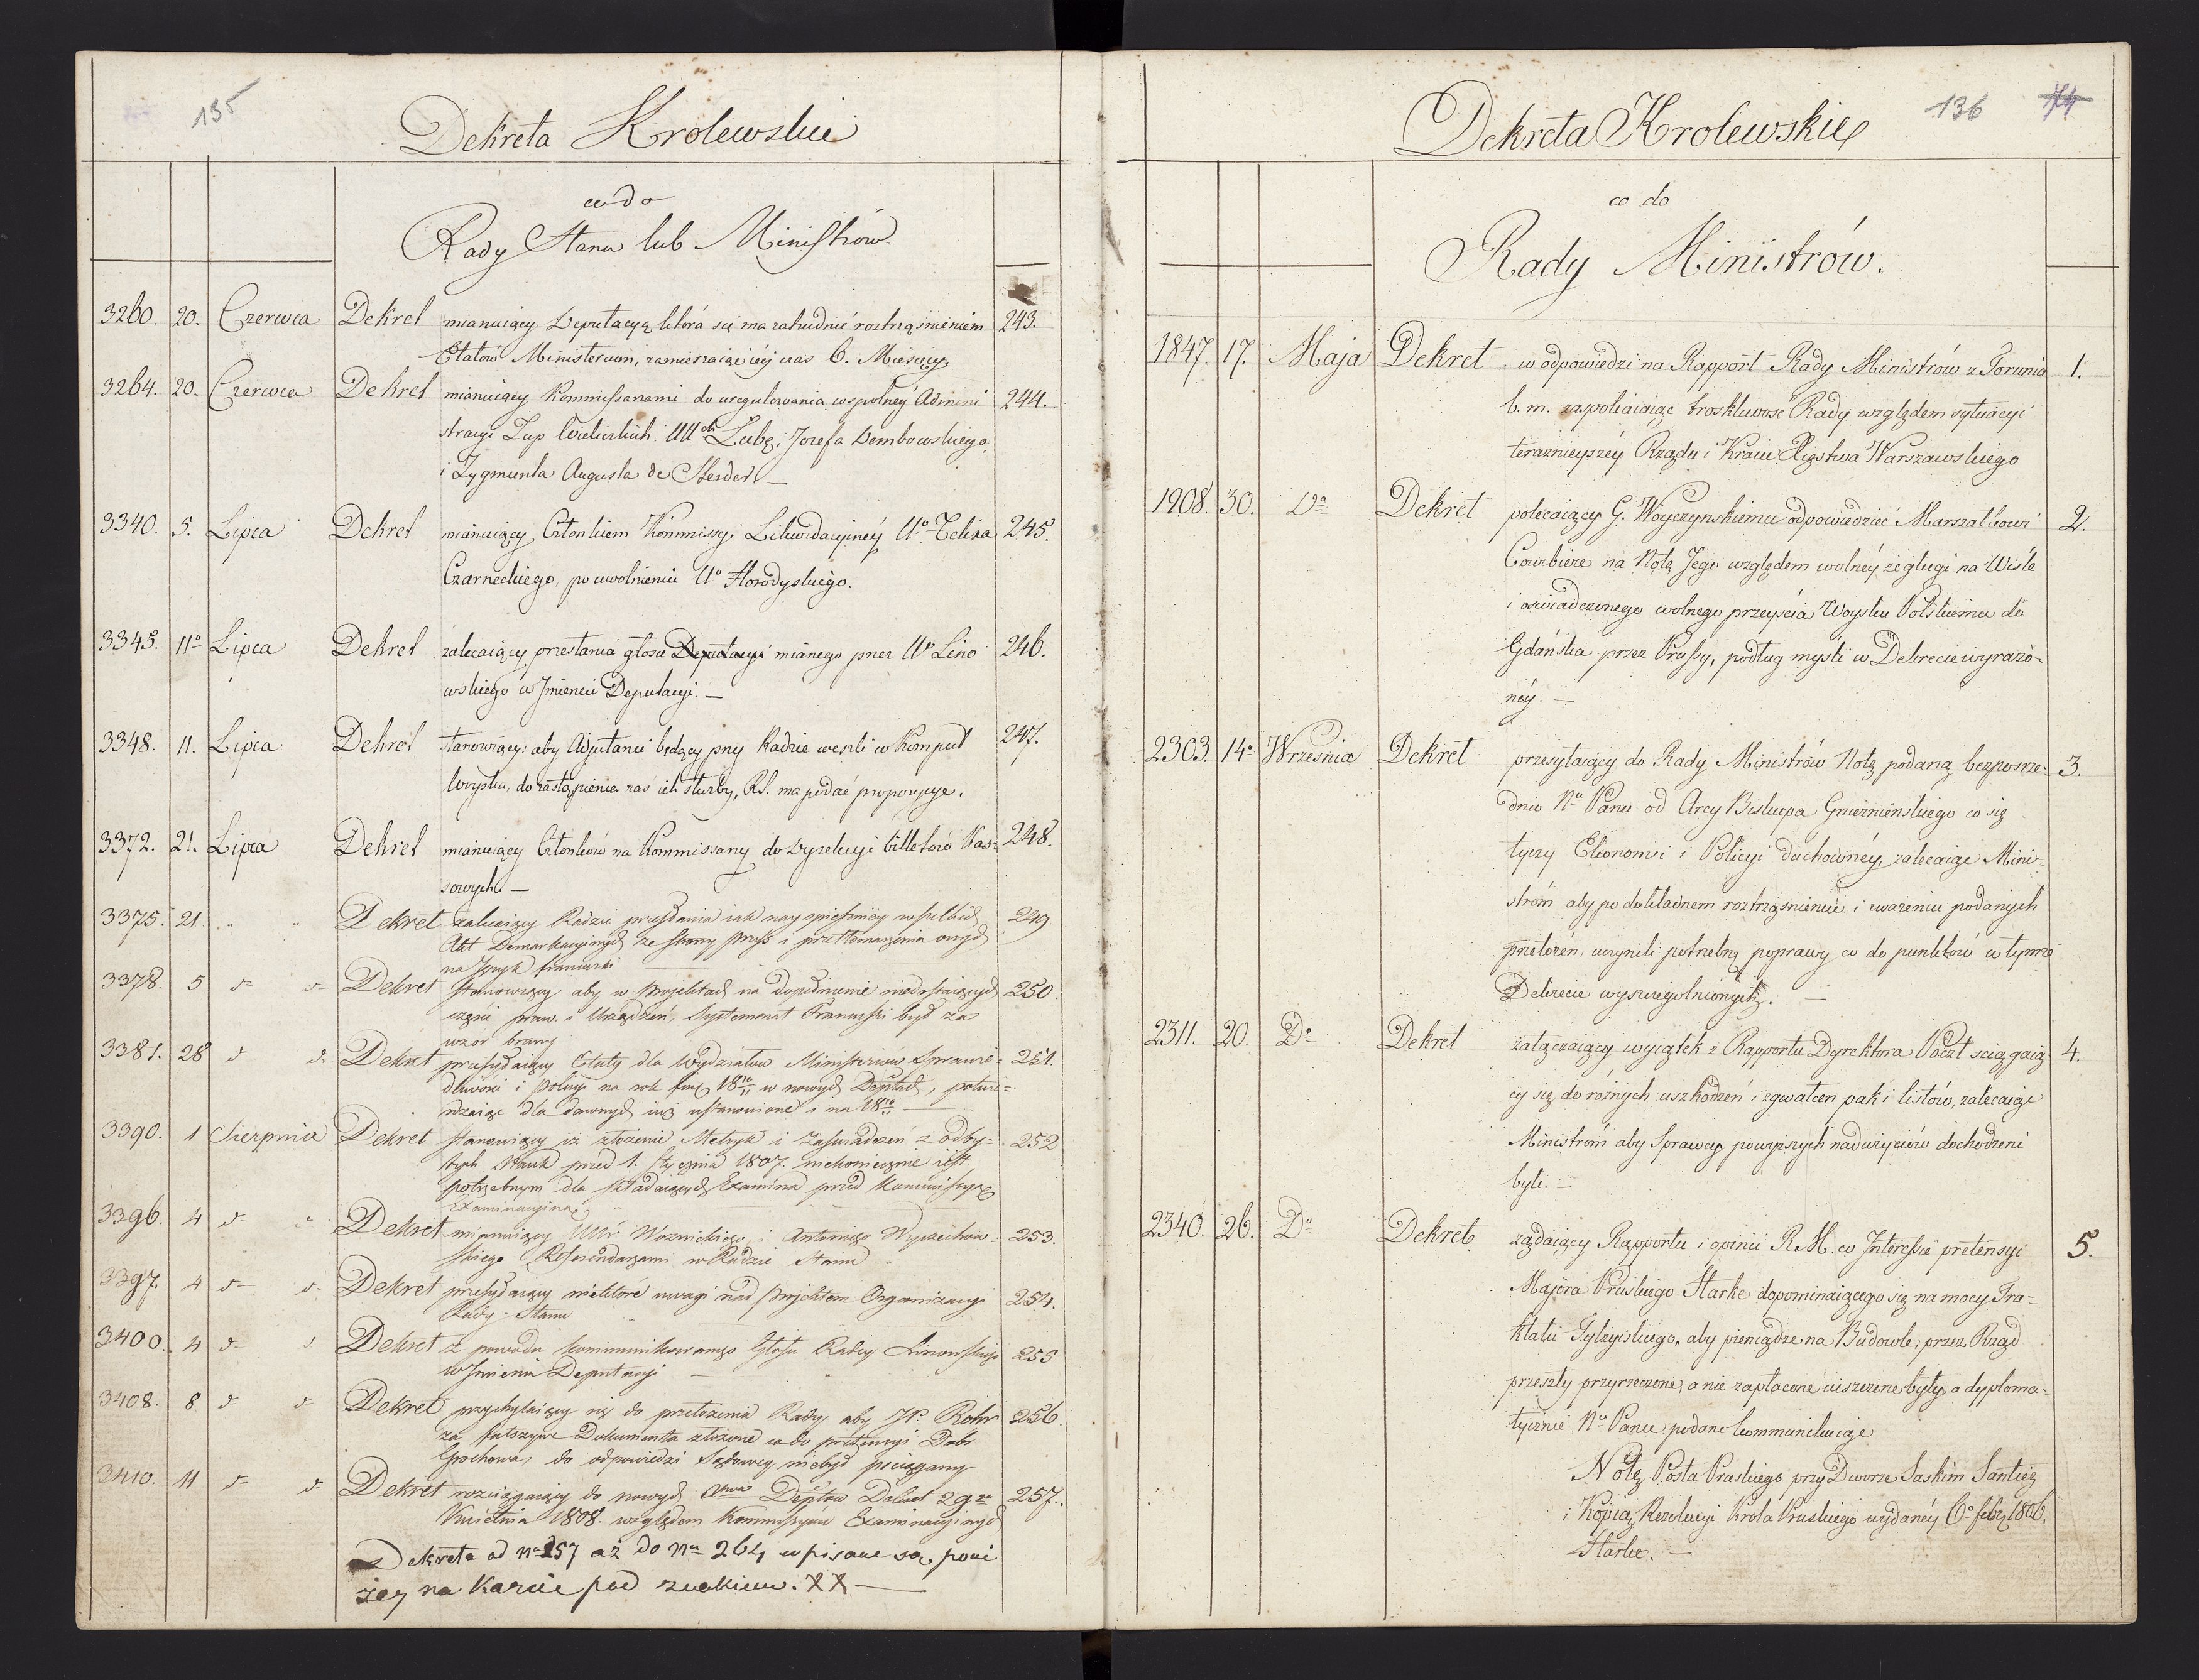 135
Dekreta Krolewskie
co do
Rady Stanu lub Ministrów.
3260. 20. Czerwca Dekret mianuiący Deputacyą która się ma zatrudnić roztrząśnieniem 243.
Etatów Ministerium, zamierzaiąc iéy czas 6. Miesięcy
3264. 20. Czerwca Dekret mianuiący Kommissarzami do uregulowania wspolney Admini 244.
stracyi Żup Wielickich UU Lubę, Jozefa Dembowskiego,
i Zygmunta Augusta de Herder —
3340. 5. Lipca Dekret mianuiący Członkiem Kommissyi Likwidacyinéy Uo Felixa 245.
Czarneckiego, po uwolnieniu Uo Horodyskiego.
3345. 11o Lipca Dekret zalecaiący przesłania głosu Deputacyi mianego przez Uo Lino 246.
wskiego w Imieniu Deputacyi. —
3348. 11. Lipca Dekret stanowiący: aby Adjutanci będący przy Radzie weszli w Komput 247.
Woyska, do zastąpienia zaś ich służby, R.S. ma podać propozycye.
3372. 21. Lipca Dekret mianuiący Członków na Kommissarzy do Dyrekcyi billetów Kas= 248.
sowych. —
3375. 21. " " Dekret zalecaiący Radzie przesłania iak nayspieszniéy wszelkich 249
Akt Demarkacyinych ze strony Pruss i przetłomaczenia onych
na Język francuski —
3378. 5 d= d= Dekret stanowiący aby w Projektach na dopełnienie niedostaiących 250.
części praw i Urządzeń, Systemat Francuski był za
wzor brany
3381. 28 d d. Dekret przesyłaiący Etaty dla Wydziałów Ministeriów Sprawie= 251.
dliwości i Policyi na rok 18 10/11 w nowych Deptach, potwie=
rdzaiąc dla dawnych iuż ustanowione i na 18 10/11 —
3390. 1 Sierpnia Dekret stanowiący iż złożenie Metryk i Zaświadczeń z odby= 252
tych Nauk przed 1. Stycznia 1807. niekoniecznie iest
potrzebnym dla składaiących Examina przed Kommissyą
Examinacyiną
3396. 4 d= d Dekret mianuiący UUr Woznickiego i Antoniego Wyczechow= 253.
skiego Referendarzami w Radzie Stanu
3397. 4 d= d. Dekret przesyłaiący niektóre uwagi nad projektem Organizacyi 254.
Rady Stanu
3400. 4 d= d Dekret z powodu kommunikowanego Głosu Radcy Linowskiego 255
w Imieniu Deputacyi —
3408. 8 d d Dekret przychylaiący się do przełożenia Rady, aby JP. Rohr 256.
za fałszywe Dokumenta złożone co do pretensyi Dobr
Grochowa, do odpowiedzi Sądowéy niebył pociągany
3410. 11 d= d Dekret rozciągaiący do nowych Deptów Dekret 29go 257.
Kwietnia 1808. względem Kommissyów Examinacyinych
Dekreta od No 257 aż do No 264 wpisane są poni
żey na Karcie pod znakiem. XX —
136 74
Dekreta Krolewskie
co do
Rady Ministrów.
1847. 17. Maja Dekret w odpowiedzi na Rapport Rady Ministrów z Torunia 1.
b.m. zaspokaiaiąc troskliwość Rady względem sytuacyi
terazniéyszéy Rządu i Kraiu Xięstwa Warszawskiego
1908. 30. Do Dekret polecaiący G. Woyczynskiemu odpowiedzieć Marszałkowi 2.
Courbiere na Notę Jego względem wolnéy żeglugi na Wiśle
i oświadczonego wolnego przeyścia Woysku Polskiemu do
Gdańska przez Prussy, podług myśli w Dekrecie wyrażo=
néy. —
2303. 14o Września Dekret przesyłaiący do Rady Ministrów Notę podaną bezposrze= 3.
dnio No Panu od Arcy Biskupa Gnieznienskiego co się
tyczy Ekonomii i Policyi duchownéy, zalecaiąc Mini=
strom aby po dokładnem roztrząśnieniu i uważeniu podanych
przełożeń, uczynili potrzebną poprawę co do punktów w tymże
Dekrecie wyszczególnionych. —
2311. 20. Do Dekret załączaiący wyiątek z Rapportu Dyrektora Poczt sciągaią= 4.
cy się do róźnych uszkodzeń i zgwałceń pak i listów, zalecaiąc
Ministrom aby Sprawcy powyższych nadużyciów dochodzeni
byli. —
2340. 26. Do Dekret żądaiący Rapportu i opinii R.M. co Interessie pretensyi 5.
Majora Pruskiego Starke dopominaiącego się na mocy Tra=
ktatu Tylżyiskiego, aby pieniądze na Budowle, przez Rząd
przeszły przyrzeczone, a nie zapłacone uiszczone były, a dyploma=
tycznie No Panu podane kommunikuiąc
Notę Posła Pruskiego przy Dworze Saskim
i Kopią Rezolucyi Króla Pruskiego wydanéy 6o febr 1806.
Starke. —